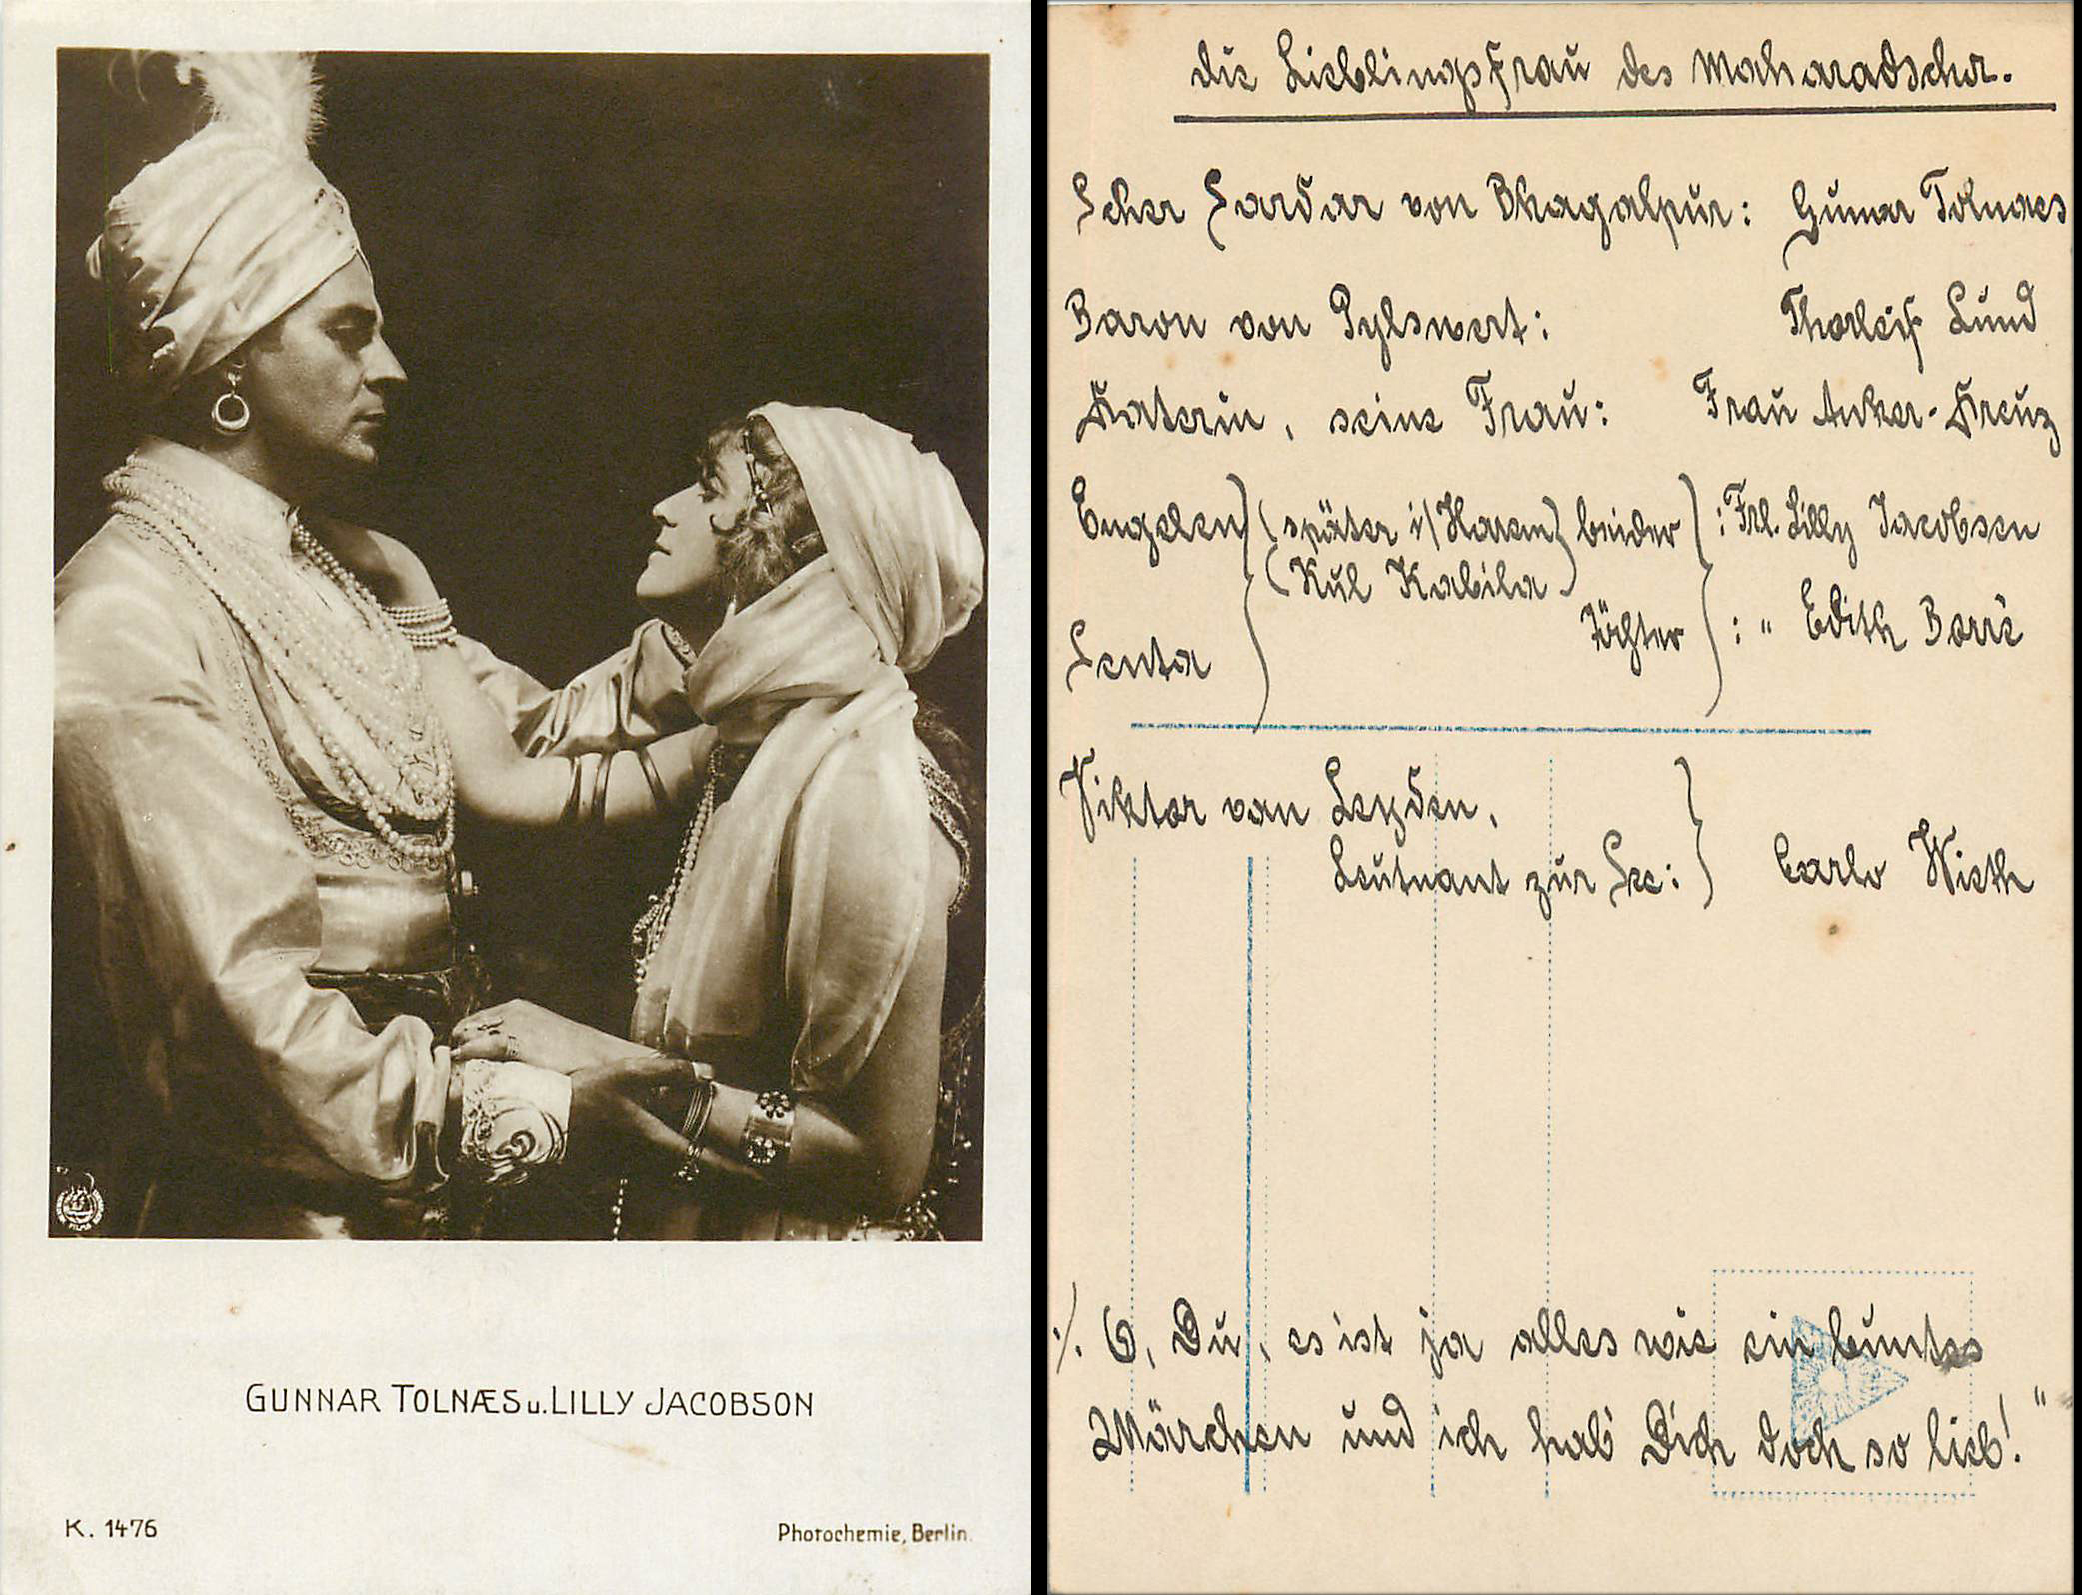 GUNNAR TOLNÆS u. LILLY JACOBSON
K. 1476
Photochemie, Berlin.
Die Lieblingsfrau des Maharadscha.
Scher Sardar von Bhagalpur: Gunnar Tolnaes
Baron von Sylswert: Thorleif Lund
Katerin, seine Frau: Frau Anker-Kreuz
Engelen } (später i/Harem) beider } : Frl. Lilly Jacobsen
(Kul Kabila)
Töchter : " Edith Borré
Senta
Viktor van Leyden,
Leutnant zur See: } Carlo Wieth
./. O, Du, es ist ja alles wie ein buntes
Märchen und ich hab' Dich doch so lieb!"